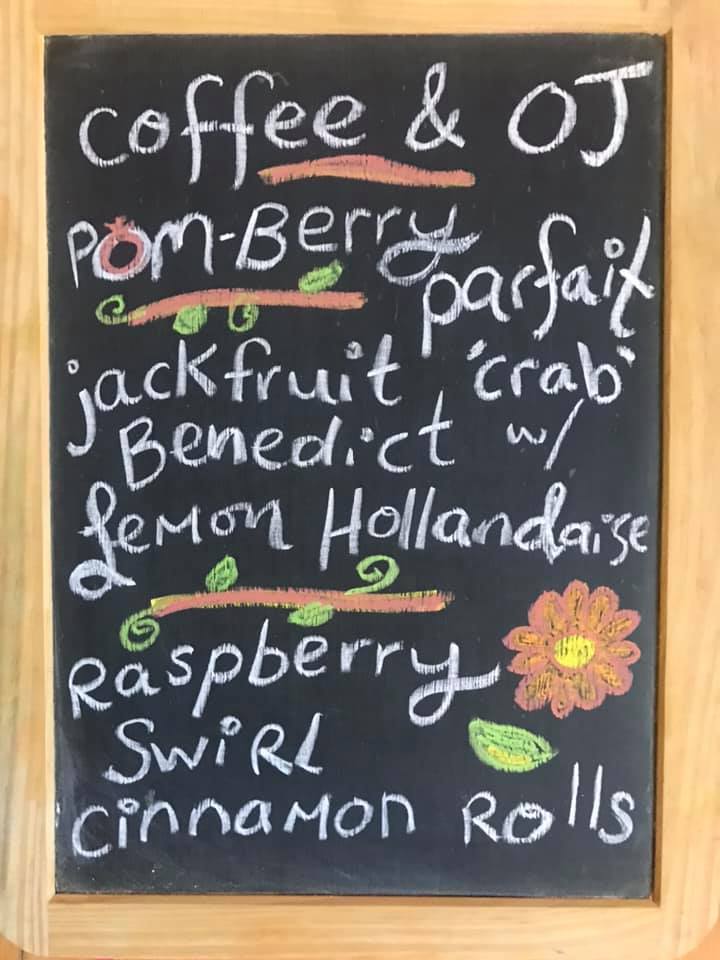 coffee & OJ
POM-Berry
parfait
jackfruit 'crab'
Benedict w/
Lemon Hollandaise
Raspberry
Swirl
Cinnamon Rolls